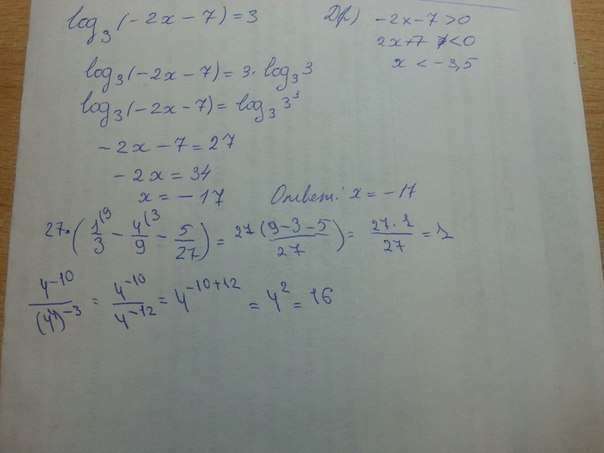 log₃(-2x-7)=3
log₃(-2x-7)=3·log₃3
log₃(-2x-7)=log₃3³
-2x-7=27
-2x=34
x=-17
Др) -2x-7>0
2x+7<0
x<-3,5
Ответ: x=-17
27·(1/3⁽⁹ - 4/9⁽³ - 5/27) = 27(9-3-5)/27 = 27·1/27 = 1
4⁻¹⁰/(4⁴)⁻³ = 4⁻¹⁰/4⁻¹² = 4⁻¹⁰⁺¹² = 4² = 16